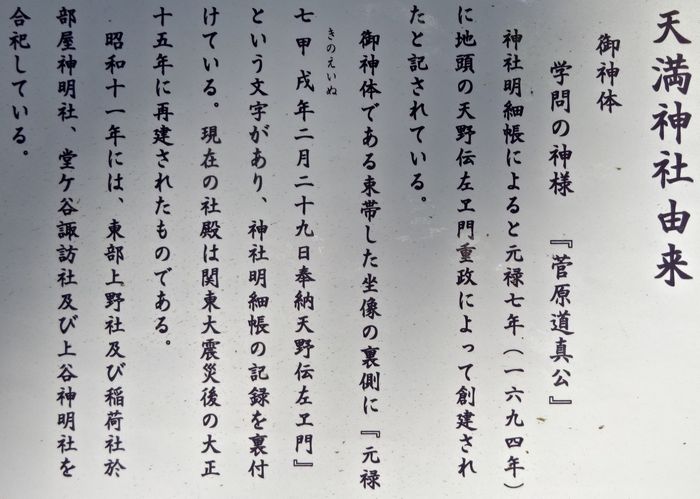 天満神社由来
御神体
学問の神様 『菅原道真公』
神社明細帳によると元禄七年(一六九四年)
に地頭の天野伝左ヱ門重政によって創建され
たと記されている。
御神体である束帯した坐像の裏側に『元禄
きのえいぬ
七甲戌年二月二十九日奉納天野伝左ヱ門』
という文字があり、神社明細帳の記録を裏付
けている。現在の社殿は関東大震災後の大正
十五年に再建されたものである。
昭和十一年には、東部上野社及び稲荷社於
部屋神明社、堂ケ谷諏訪社及び上谷神明社を
合祀している。